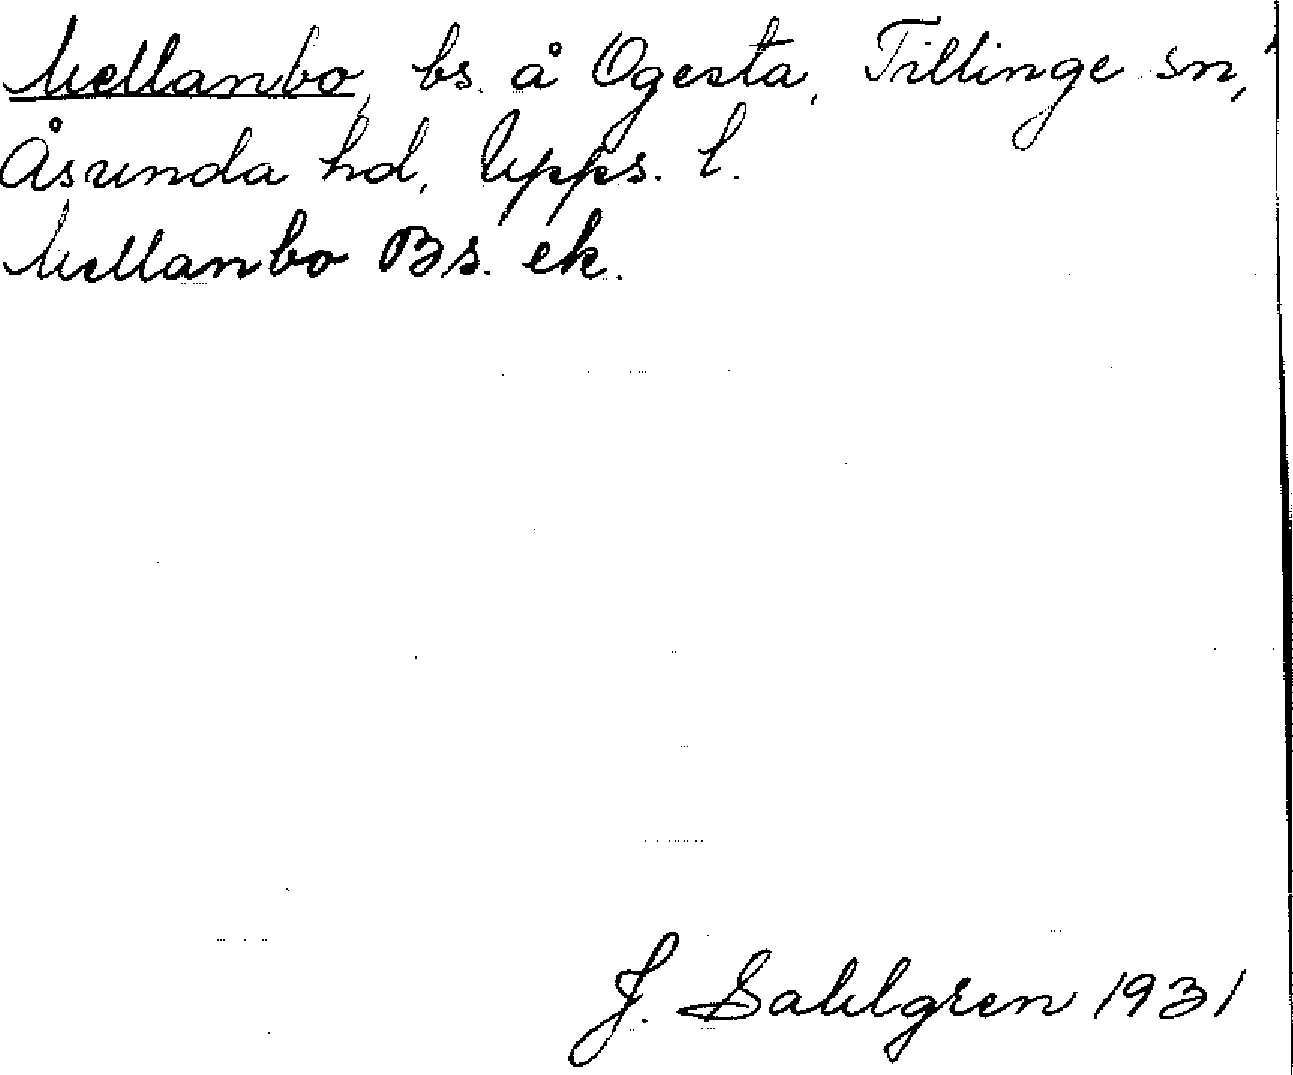 Mellanbo, bs. å Ogesta, Tillinge sn,
Åsunda hd, Upps. l.
Mellanbo Bs. ek.
J. Sahlgren 1931